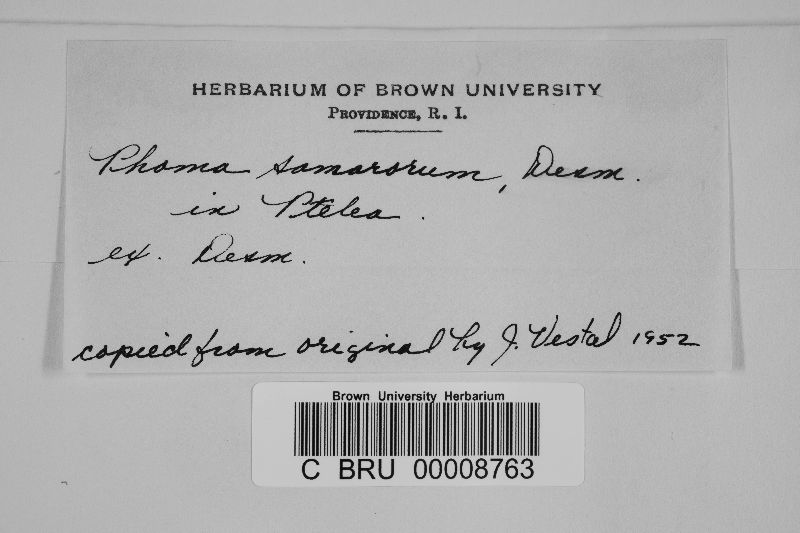 HERBARIUM OF BROWN UNIVERSITY
PROVIDENCE, R. I.
Phoma samarorum, Desm.
in Ptelea.
ex. Desm.
copied from original by J. Vestal 1952
Brown University Herbarium
C BRU 00008763